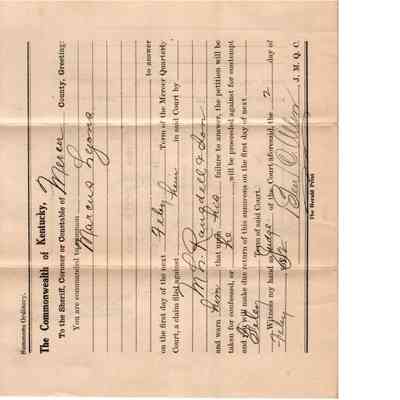 Summons Ordinary.
The Commonwealth of Kentucky,
To the Sheriff, Coroner or Constable of Mercer County, Greeting:
You are commanded to summon
Marcus Lyons
to answer
on the first day of the next Feby Term of the Mercer Quarterly
Court, a claim filed against him in said Court by
M. L. Rangdell & Son
and warn him that upon his failure to answer, the petition will be
taken for confessed, or he will be proceeded against for contempt
and will make due return of this summons on the first day of next
Feby Term of said Court.
Witness my hand as Judge of the Court aforesaid, the 2 day of
Feby
Ben J. M. Q. C.
The Herald Print